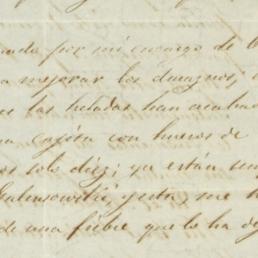 por mi encargo de
a mejorar los duraznos,
las heladas han acabado
cajón con huevos de
os solo diez; ya están
y esta, me
de una fiebre que lo ha de